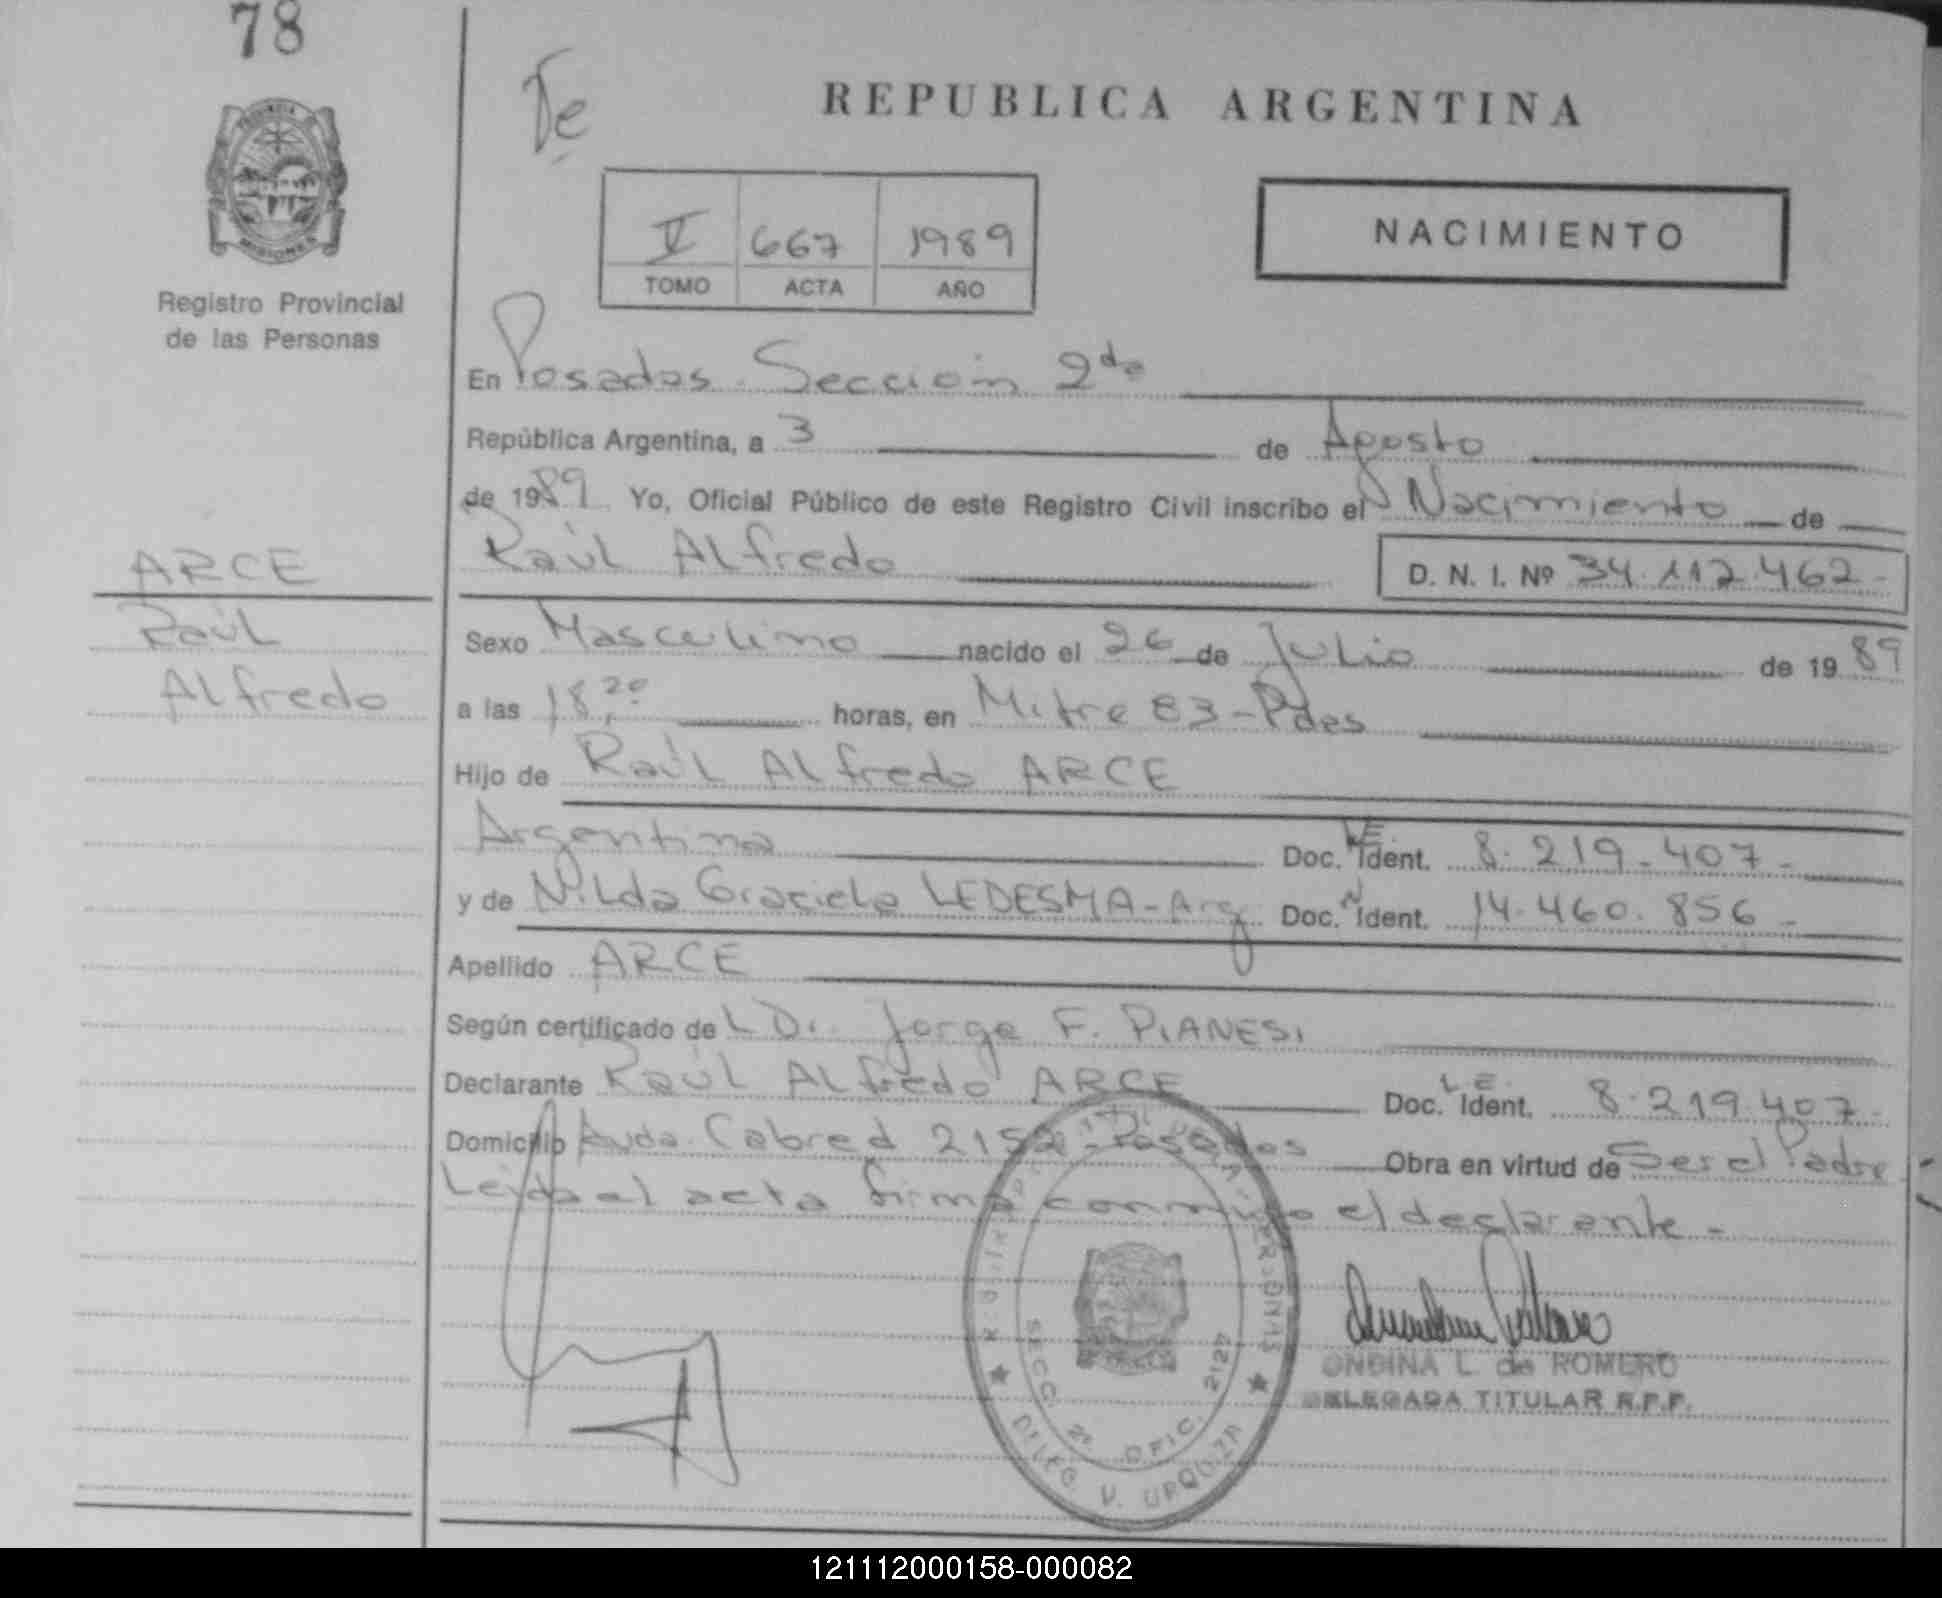 78
De
REPUBLICA ARGENTINA
PROVINCIA
MISIONES
Registro Provincial
de las Personas
V 667 1989
TOMO ACTA AÑO
NACIMIENTO
En Posadas Sección 2da
República Argentina, a 3 de Agosto
de 1989 Yo, Oficial Público de este Registro Civil inscribo el Nacimiento de
Raúl Alfredo D. N. I. Nº 34.112.462-
ARCE
Raúl
Alfredo
Sexo Masculino nacido el 26 de Julio de 1989
a las 18,20 horas, en Mitre 83-Pdas
Hijo de Raúl Alfredo ARCE
Argentina Doc. L.E. Ident. 8.219.407-
y de Nilda Graciela LEDESMA-Arg Doc. N Ident. 14.460.856-
Apellido ARCE
Según certificado del Dr. Jorge F. PIANESI
Declarante Raúl Alfredo ARCE Doc. L.E. Ident. 8.219.407-
Domicilio Avda. Cabred 2152-Posadas Obra en virtud de Ser el Padre
Leida el acta firma conmigo el declarante-
PERSONAS
SECC. 2º OFIC. 2124
DELEG. V. URQUIZA
ONDINA L. de ROMERO
DELEGADA TITULAR R.P.P.
121112000158-000082